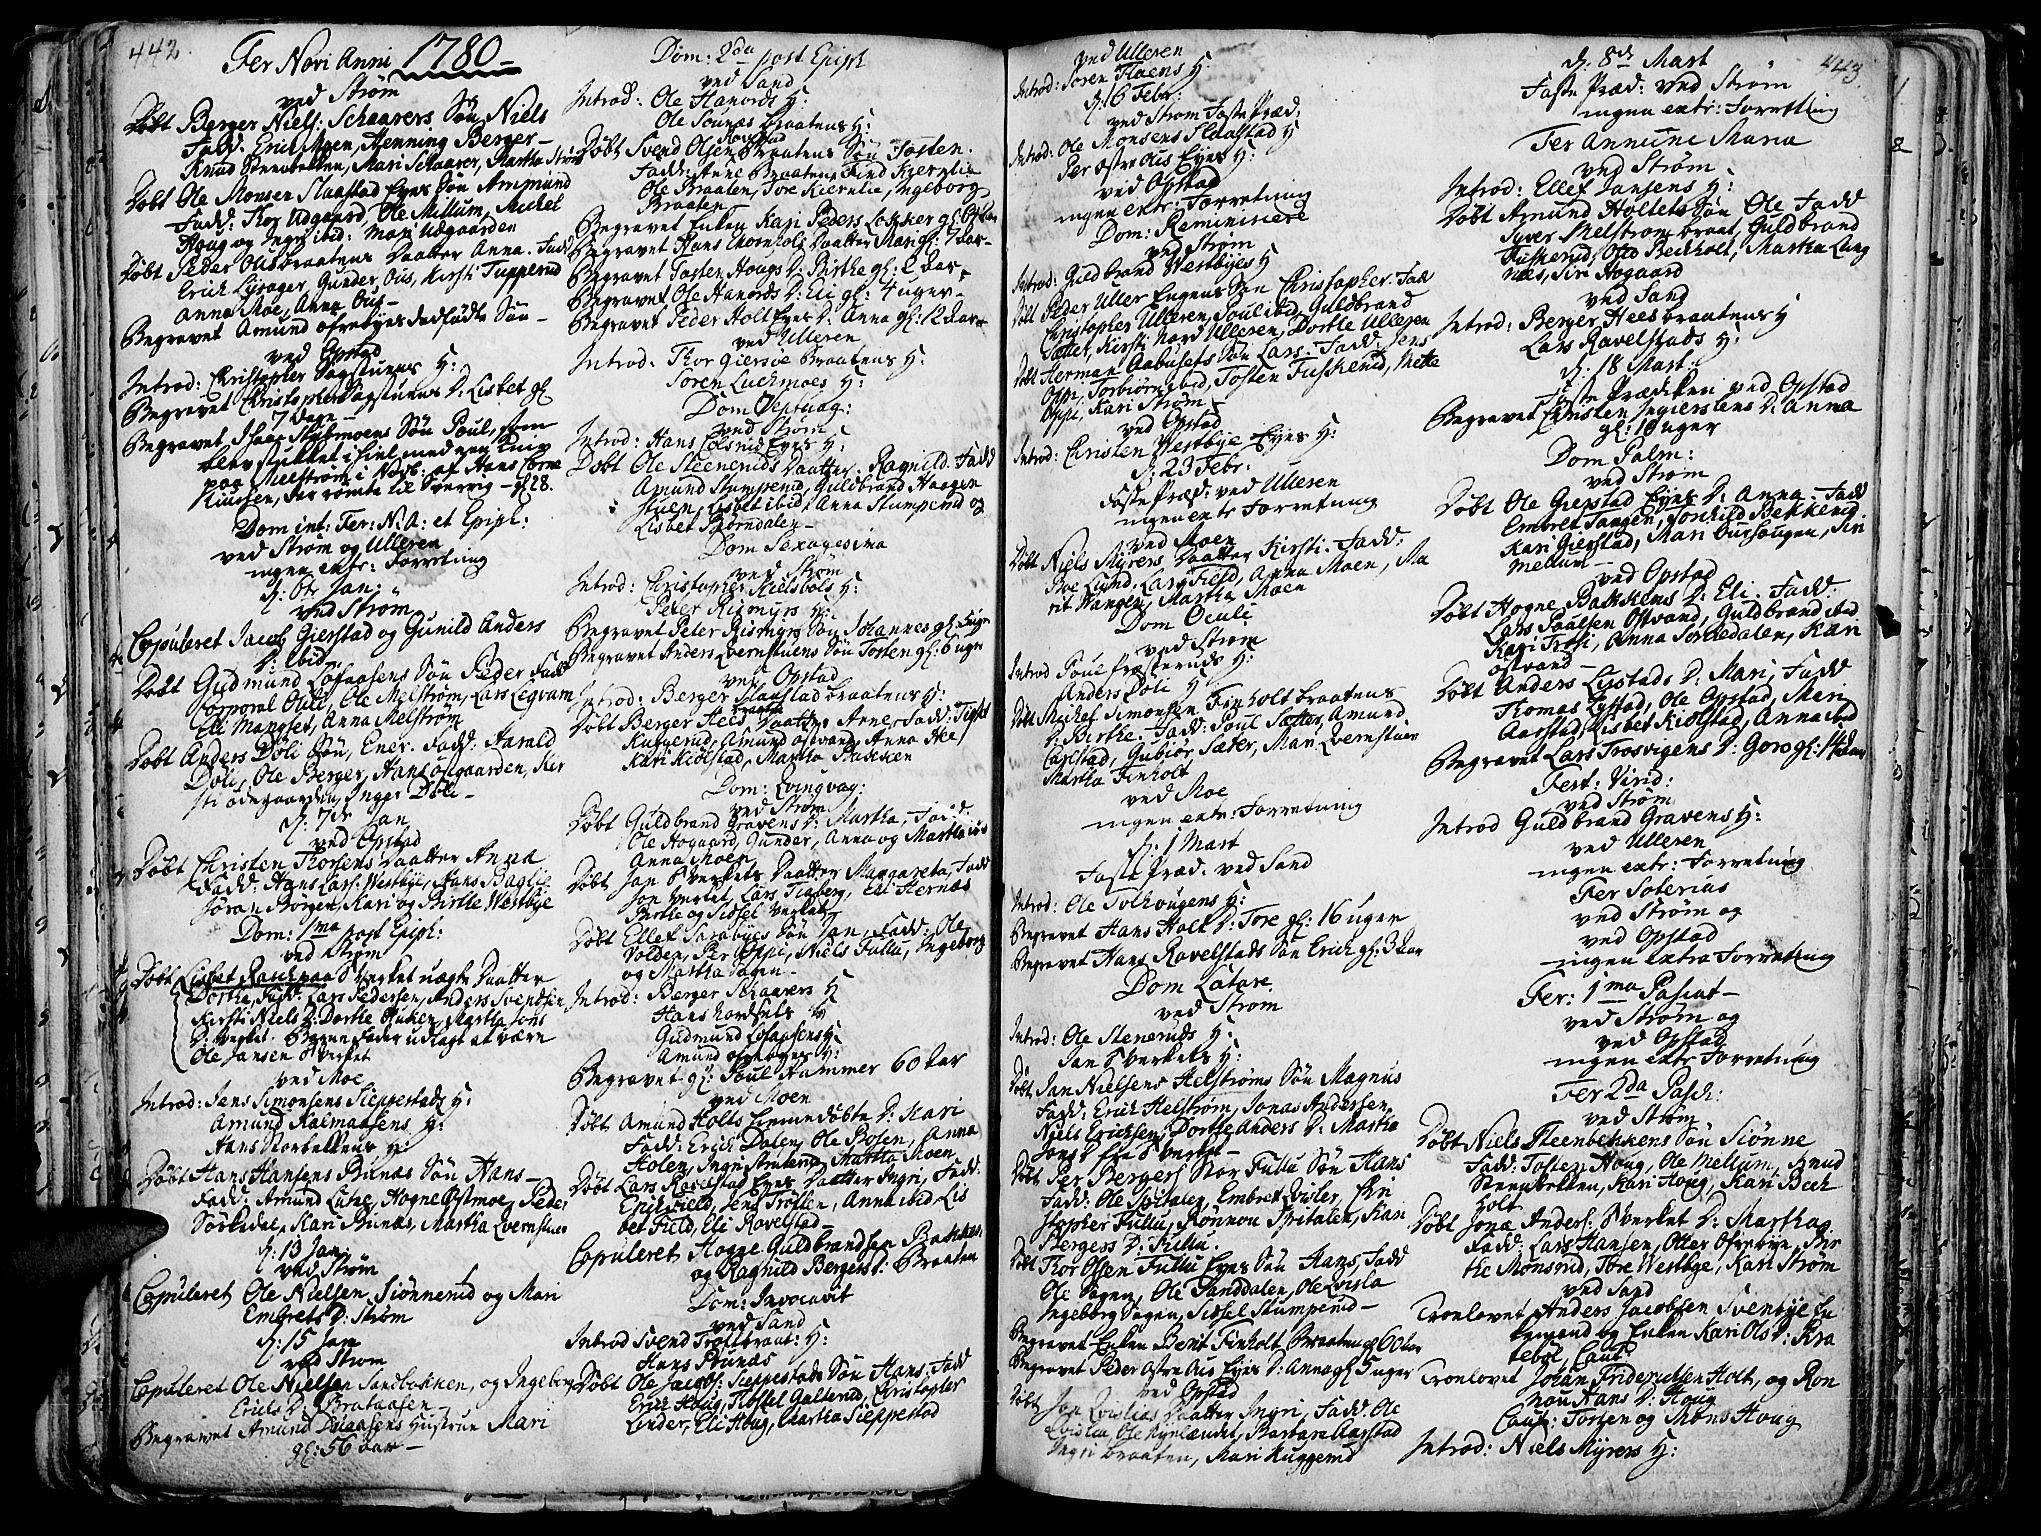 442.
Fer Novi Anni 1780
ved Strøm
Døbt Berger Niels: Schaarers Søn Niels
Fadd: Erich Moen, Henning Berger
Knud Steenbekken, Mari Schaarer, Martha Strøm
Døbt Ole Monsen Slaastad Eyes Søn Ammund
Fadd: Thor Udgaard, Ole Millum, Michel
Houg og Ingri ibid: Mari Udgaarden
Døbt Peder Ousbraatens Daatter Anna. Fadd
Erich Lysager, Gunder Ous, Kirsti Tupperud
Anna Moe, Anna Ous
Begravet Amund Ofrebyes dødfødte Søn
ved Opstad
Introd: Christopher Sagstuens H:
Begravet Christopher Sagstuens D: Lisbet gl
7 Dage
Begravet Isaac Skibmoens Søn Poul, som
blev stukket ihiel med een Kniv
paa Meelstrøm i Novb: af Hans
der rømte til Sverrig gl 28.
Dom int: Fer: N: A: et Epiph:
ved Strøm og Ulleren
ingen extr: Forretning
d: 6te Jan:
ved Strøm
Copuleret Jacob Gierstad og Gunild Anders
D: ibid
Døbt Gudmund Løfaasens Søn Peder Fadd
Corporal Ouli, Ole Melstrøm, Lars Legvam
Eli Mangset, Anna Melstrøm
Døbt Anders Døli Søn, Ener. Fadd: Harald
Døli, Ole Berger, Hans Ousgaarden, Kir
sti Ødegaarden, Inger Døli
d: 7de Jan
ved Opstad
Døbt Christen Thorsens Daatter Anna
Fadd: Hans Lars: Westbye, Hans Baglie
Jøran Børgen, Kari og Birthe Westbye
Dom: 1ma post Epiph:
ved Strøm
Døbt Lisbet Rauspaa Sverket uægte Daatter
Dorthe, Fadd: Lars Pedersen, Anders Svendsen
Kirsti Niels D: Dorthe Onken, Martha Jons
D: Verket. Barne Fader udlagt at være
Ole Jansen Sverket
ved Moe
Introd: Jens Simonsens Sieppestads H:
Amund Kalmaasens H:
Hans Norbekkens H:
Døbt Hans Hansens Bunæs Søn Hans
Fadd: Amund Lune, Hogne Østmoe, Peder
Sørkedal, Kari Bunæs, Martha Qvernstuen
d: 13 Jan
ved Strøm
Copuleret Ole Nielsen Siønnerud og Mari
Embrets D: Strøm
d: 15 Jan
ved Strøm
Copuleret Ole Nielsen Sandbakken, og Ingeborg
Erichs D: Brataasen
Begravet Amund Daaasens Hustrue Mari
gl: 56 aar
Dom: 2da post Epiph
ved Sand
Introd: Ole Hanords H:
Ole Sounæs braatens H:
Døbt Svend Olsen Braatens Søn Tosten.
Fadd: Arne Braaten, Find Kiernlie
Ole Braaten, Tore Kiernlie, Ingeborg
Braaten
Begravet Enken Kari Peders Løkker gl: 64 aar
Begravet Hans Thornholt Daatter Mari gl: 7 aar
Begravet Tosten Hougs D: Birthe gl: 2 aar
Begravet Ole Hanords D: Eli gl: 4 uger
Begravet Peder Holt Eyes D: Anna gl: 12 aar
ved Ulleren
Introd: Thor Giersøe Braatens H:
Soren Luchmoes H:
Dom Septuag:
ved Strøm
Introd: Hans Colsrud Eyes H:
Døbt Ole Steeneruds Daatter Ragnild. Fadd
Amund Stumperud, Guldbrand Haagen
stuen, Lisbet ibid, Anna Stumperud og
Lisbet Sørmdalen
Dom Sexagesima
ved Strøm
Introd: Christopher Kielsbøls H:
Peter Rismyrs H:
Begravet Peter Rismyrs Søn Johannes gl: 5 uger
Begravet Anders Qvernstuens Søn Tosten gl: 6 uger
ved Opstad
Introd: Berger Slaastad braatens H:
Døbt Berger Hees braaten Daatter Anne, Fadd:
Kuggerud, Amund Østvand, Anna Hee
Kari Kiølstad, Martha Bakken
Dom: Qvinqvag:
ved Strøm
Døbt Guldbrand Gravens D: Martha, Fadd:
Ole Aogaard, Gunder, Anna og Martha
Anna Moen
Døbt Jon Sverkets Daatter Margareta, Fadd
Jon Verket, Lars Tiaberg, Eli Hernæs
Birthe og Sidsel Verket
Døbt Ellef Sarabyes Søn Jan, Fadd: Ole
Volden, Per Oppi, Niels Fullu, Ingeborg
og Martha Sagen
Introd: Berger Schaarers H
Hans Nordsets H
Gudmund Løfaasens H:
Amund Ofrebyes H:
Begravet gl: Poul Hammer 60 aar
ved Moen
Døbt Amund Holts hiemmedøbte D: Mari
Fadd: Erich Dalen, Ole Rosen, Anna
Holen, Ingri Stralerud, Martha Moen
Døbt Lars Ravelstad Eyes Daatter Ingri, Fadd:
Erich Field, Jens Trollen, Anna ibid, Lis
bet Field, Eli Ravelstad
Copuleret Hogne Guldbrandsen Bakken
og Ragnild Bergers D: Braaten
Dom: Invocavit
ved Sand
Introd Svend Trollbraat: H:
Hans Bunæs
Døbt Ole Jacobs: Sieppestads Søn Hans, Fadd
Erich Houg, Kittel Galterud, Christopher
Linder, Eli Houg, Martha Sieppestad
ved Ulleren
Introd: Soren Floens H:
d: 16 Febr:
ved Strøm Faste Præd:
Introd: Ole Monsens Slaastad H
Per østre Ous Eyes H:
ved Opstad
ingen extr: Forretning
Dom: Reminisiere
ved Strøm
Introd: Guldbrand Westbyes H
Døbt Peder Uller Engens Søn Christopher. Fad
Christopher Ulleren, Poul ibid, Guldbrand
Sættet, Kirsti Nord Ulleren, Dorthe Ulleren
Døbt Herman Aabusets Søn Lars. Fadd: Jens
Oppi, Torbiørn ibid, Tosten Fuskerud, Mette
Oppi, Kari Strøm
ved Opstad
Introd: Christen Westbye Eyes H:
d: 23 Febr:
Faste Præd: ved Ulleren
ingen extr Forretning
ved Moen
Døbt Niels Myrers Daatter Kirsti. Fadd:
Boe Lund, Lars Field, Anna Moen, Ma
rit Wangen, Martha Moen
Dom Oculi
ved Strøm
Introd Poul Præsteruds H:
Anders Døli H
Døbt Michel Simonsen Finholt braatens
D: Birthe. Fadd: Poul Sætter, Amund
Carlstad, Gubiør Sæder, Mari Qvernstuen
Martha Finholt
ved Moe
ingen extr: Forretning
d: 1 Mart
Faste Præd: ved Sand
Introd: Ole Tolhougens H:
Begravet Hans Holt D: Tore gl: 16 uger
Begravet Hans Ravelstads Søn Erich gl: 3 aar
Dom Lætare
ved Strøm
Introd: Ole Stenneruds H:
Jan Sverkets H:
Døbt Jan Nielsens Helstrøms Søn Magnus
Fadd: Erich Helstrøm, Jonas Andersen
Niels Erichsen, Dorthe Anders D: Martha
Jons D: fra Sverket
Døbt Per Bergers Stor Fullu Søn Hans
Fadd: Ole Spitalen, Embret Qvisler, Chri
stopher Fullu, Rønnou Spitalen, Kari
Bergers D: Fullu.
Døbt Thor Olsen Fullu Eyes Søn Hans, Fadd
Ole Sagen, Ole Sanddalen, Ole Qvisla
Ingeborg Sagen, Sidsel Stumperud
Begravet Enken Berit Finholt Braaten gl 60 aar
Begravet Peder østre Ous Eyes D: Anna gl 5 uger
ved Opstad
Døbt Jon Qvislias Daatter Ingri, Fadd. Ole
Qvislia, Ole Rynlændet, Barbara Aarstad
Ingri Braaten, Mari Kuggerud
443.
d: 8de Mart
Faste Præd: ved Strøm
ingen extr: Forretning
Fer Annunc Maria
ved Strøm
Introd: Ellef Jansens H:
Døbt Amund Holtets Søn Ole Fadd
Syver Melstrøm braat, Guldbrand
Fuskerud, Otto Beckholt, Martha Lang
næs, Siri Aogaard
ved Sand
Introd: Berger Heesbraatens H
Lars Ravelstads H:
d: 18 Mart:
Faste Prædiken ved Opstad
Begravet Christen Ingierstens D: Anna
gl: 10 uger
Dom Palm:
ved Strøm
Døbt Ole Gierstad Eyes D: Anna. Fadd
Embret Tangen, Gonhild Bekkerud
Kari Gierstad, Mari Oushougen, Siri
Mellum
ved Opstad
Døbt Hogne Bakkens D: Eli. Fadd:
Lars Paalsen Østvand, Guldbrand ibid
Kari Trøsi, Anna Sormedalen, Kari
Østvand
Døbt Anders Lystads D: Mari, Fadd
Thomas Lystad, Ole Opstad, Mari
Aarstad, Lisbet Kiølstad, Anna ibid
Begravet Lars Trosvigens D: Goro gl: 14 dan
Fest: Virid:
ved Strøm
Introd Guldbrand Gravens H:
ved Ulleren
ingen extr: Forretning
Fer Soterius
ved Strøm og
ved Opstad
ingen extra Forretning
Fer: 1ma Pascat
ved Strøm og
ved Opstad
ingen extr Forretning
Fer 2da Pasch:
ved Strøm
Døbt Niels Steenbekkens Søn Siønne
Fadd: Tosten Houg, Ole Mellum, Knud
Steenbekken, Kari Houg, Kari Beck
holt
Døbt Jonæ Anders: Sverket D: Martha
Fadd: Lars Hansen, Otter Ofrebye, Bir
the Monsrud, Tore Westbye, Kari Strøm
ved Sand
Tronlovet Anders Jacobsen Svenbye En
kemand og Enken Kari Ols D: Kra
kebøl, Caut
Tronlovet Johan Friderichsen Holt, og Ron
nou Hans D: Houg
Caut: Tosten og Mons Houg
Introd: Niels Myrers H: